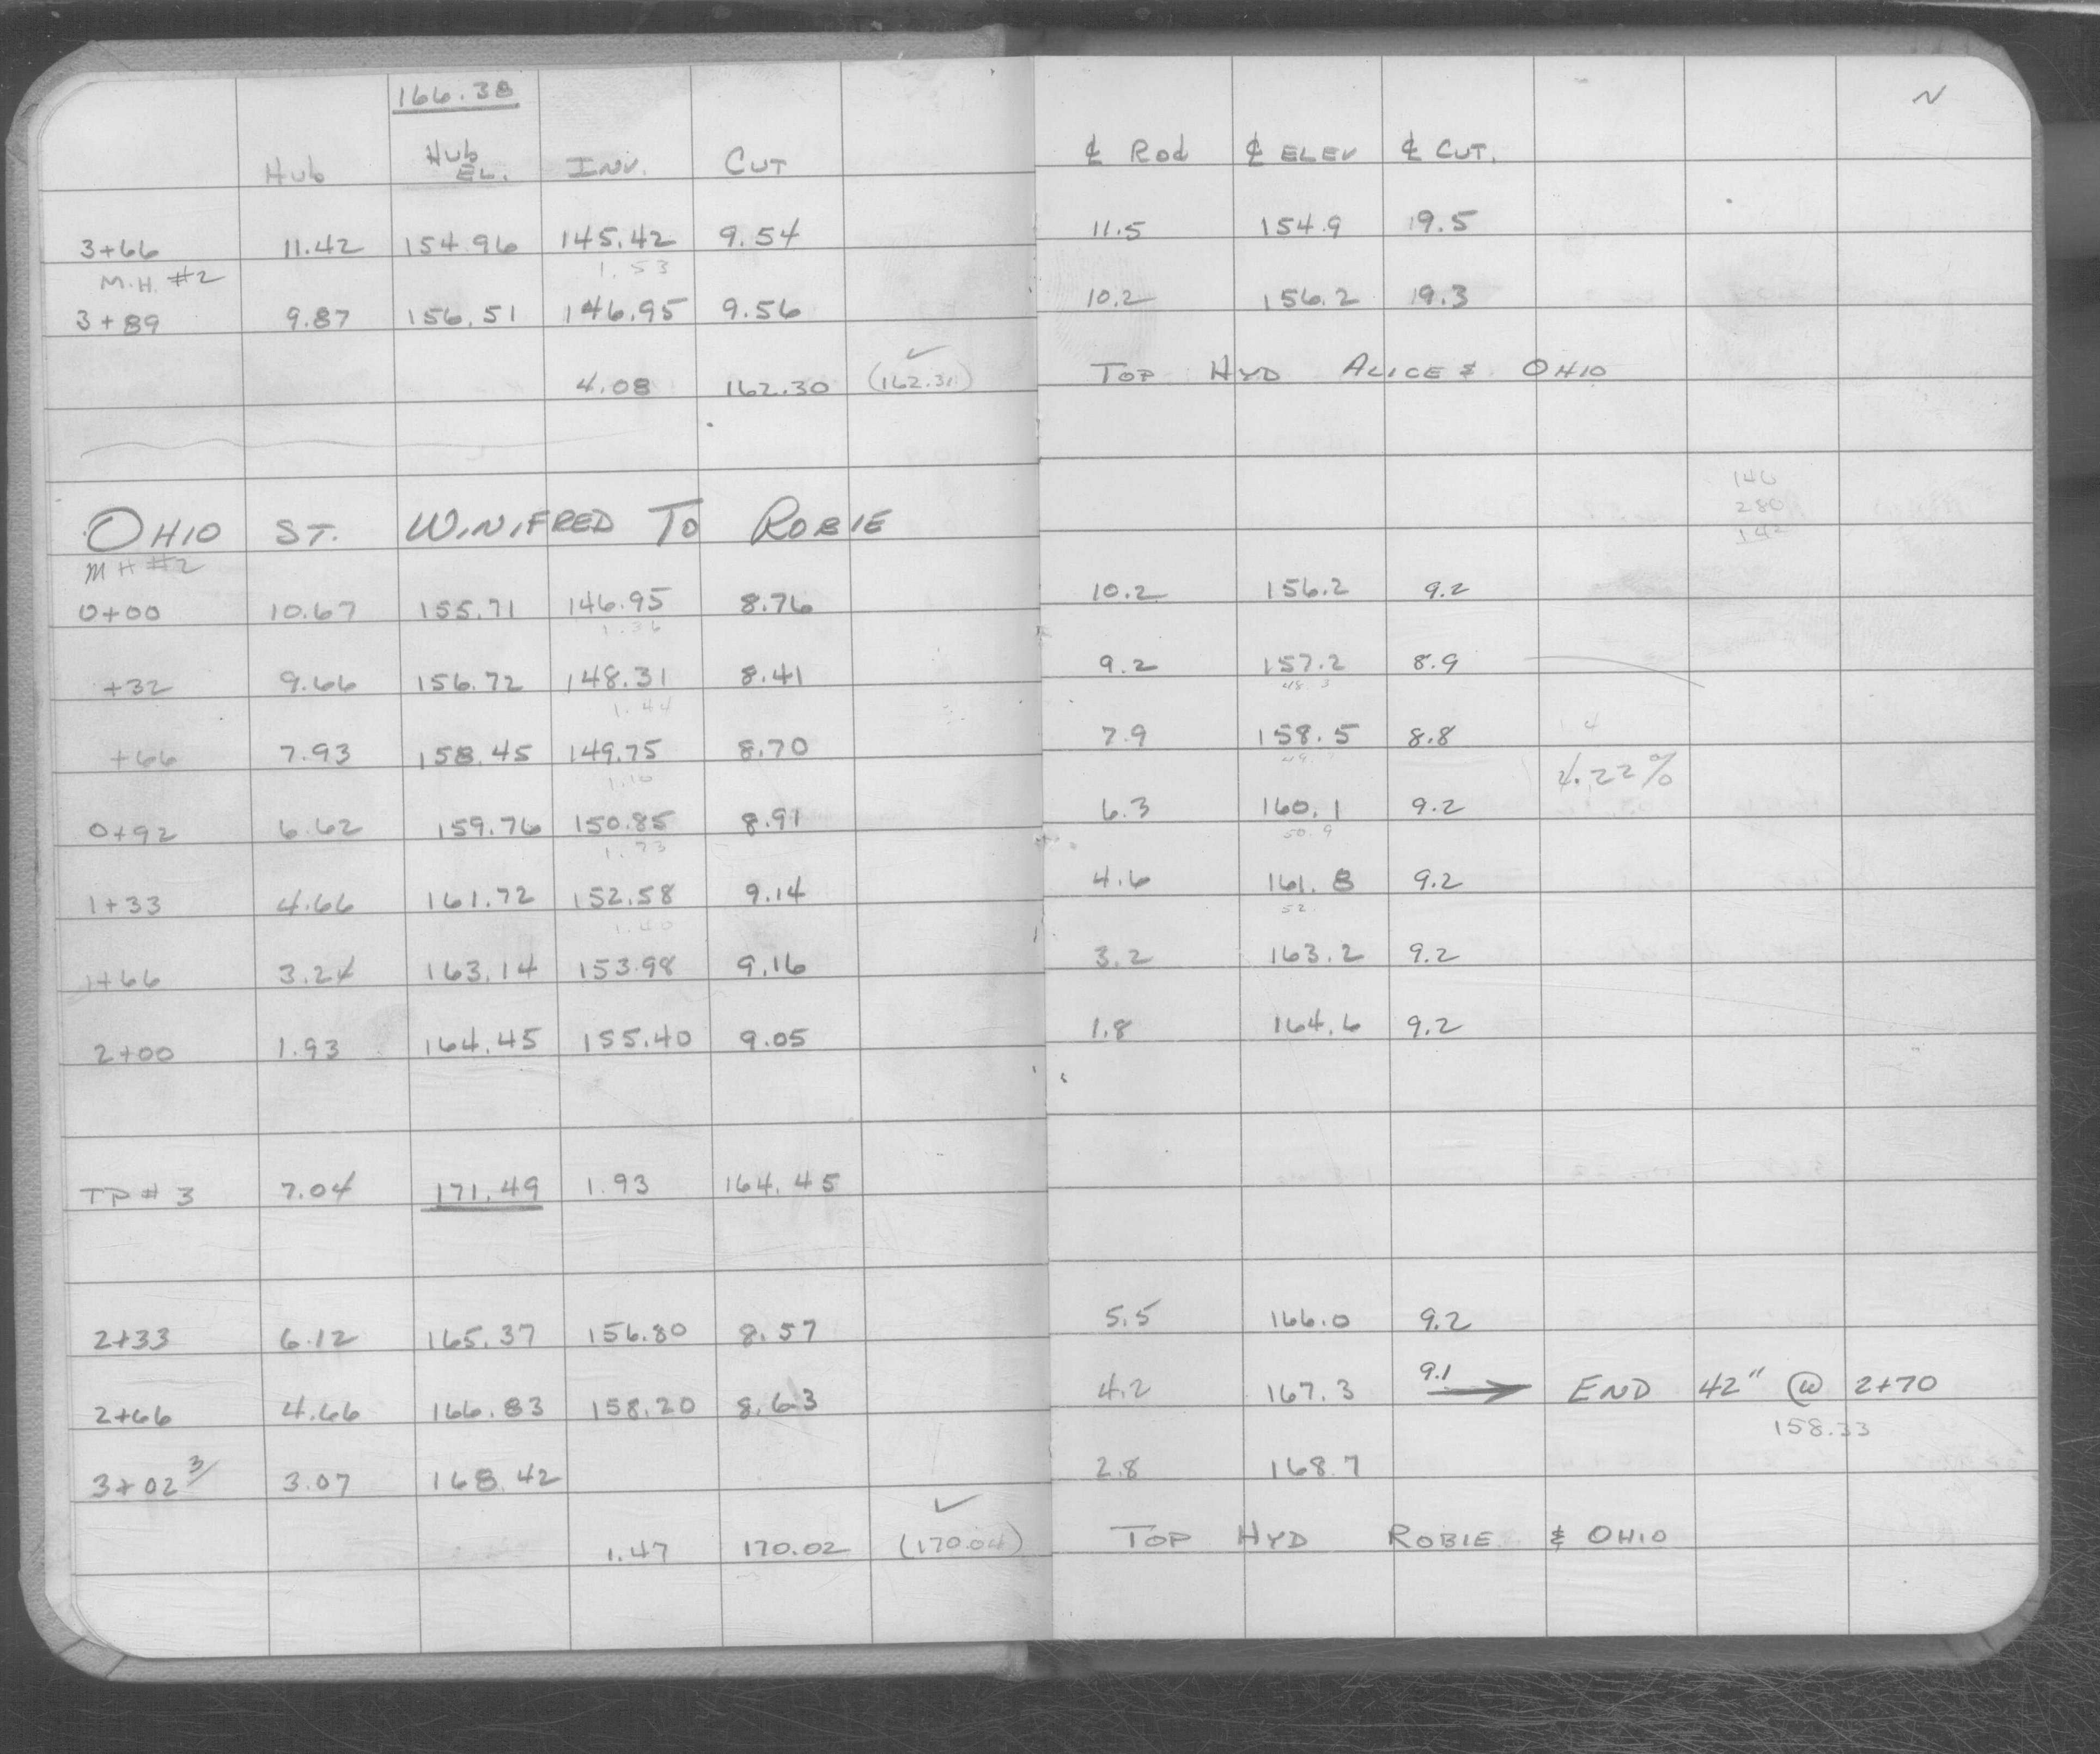 166.38
Hub Hub EL. INV. CUT ℄ Rod ℄ ELEV ℄ CUT.
3+66 11.42 154.96 145.42 9.54 11.5 154.9 9.5
M.H. #2 1.53
3+89 9.87 156.51 146.95 9.56 10.2 156.2 9.3
4.08 162.30 (162.31) ✓ TOP HYD ALICE & OHIO
146
280
142
OHIO ST. WINIFRED TO ROBIE
MH #2
0+00 10.67 155.71 146.95 8.76 10.2 156.2 9.2
1.36
+32 9.66 156.72 148.31 8.41 9.2 157.2 8.9
1.44 48.3
+66 7.93 158.45 149.75 8.70 7.9 158.5 8.8
1.10 4.22%
0+92 6.62 159.76 150.85 8.91 6.3 160.1 9.2
1.73 50.9
1+33 4.66 161.72 152.58 9.14 4.6 161.8 9.2
1.40 52.
1+66 3.24 163.14 153.98 9.16 3.2 163.2 9.2
2+00 1.93 164.45 155.40 9.05 1.8 164.6 9.2
TP # 3 7.04 171.49 1.93 164.45
2+33 6.12 165.37 156.80 8.57 5.5 166.0 9.2
2+66 4.66 166.83 158.20 8.63 4.2 167.3 9.1 → END 42" @ 2+70
158.33
3+02 3/ 3.07 168.42 2.8 168.7
1.47 170.02 (170.04) ✓ TOP HYD ROBIE & OHIO